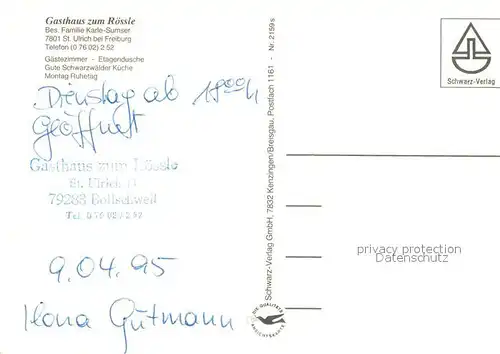 Gasthaus zum Rössle
Bes. Familie Karle-Sumser
7801 St. Ulrich bei Freiburg
Telefon (0 76 02) 2 52
Gästezimmer - Etagendusche
Gute Schwarzwälder Küche
Montag Ruhetag
Dienstag ab 18ººh
geöffnet
Gasthaus zum Rössle
St. Ulrich 11
79283 Bollschweil
Tel. 0 76 02 / 2 52
9.04.95
Ilona Gutmann
Schwarz-Verlag GmbH, 7832 Kenzingen/Breisgau, Postfach 1161 - Nr. 2159 s
DIE QUALITÄTS
ANSICHTSKARTE
Schwarz-Verlag
privacy protection
Datenschutz